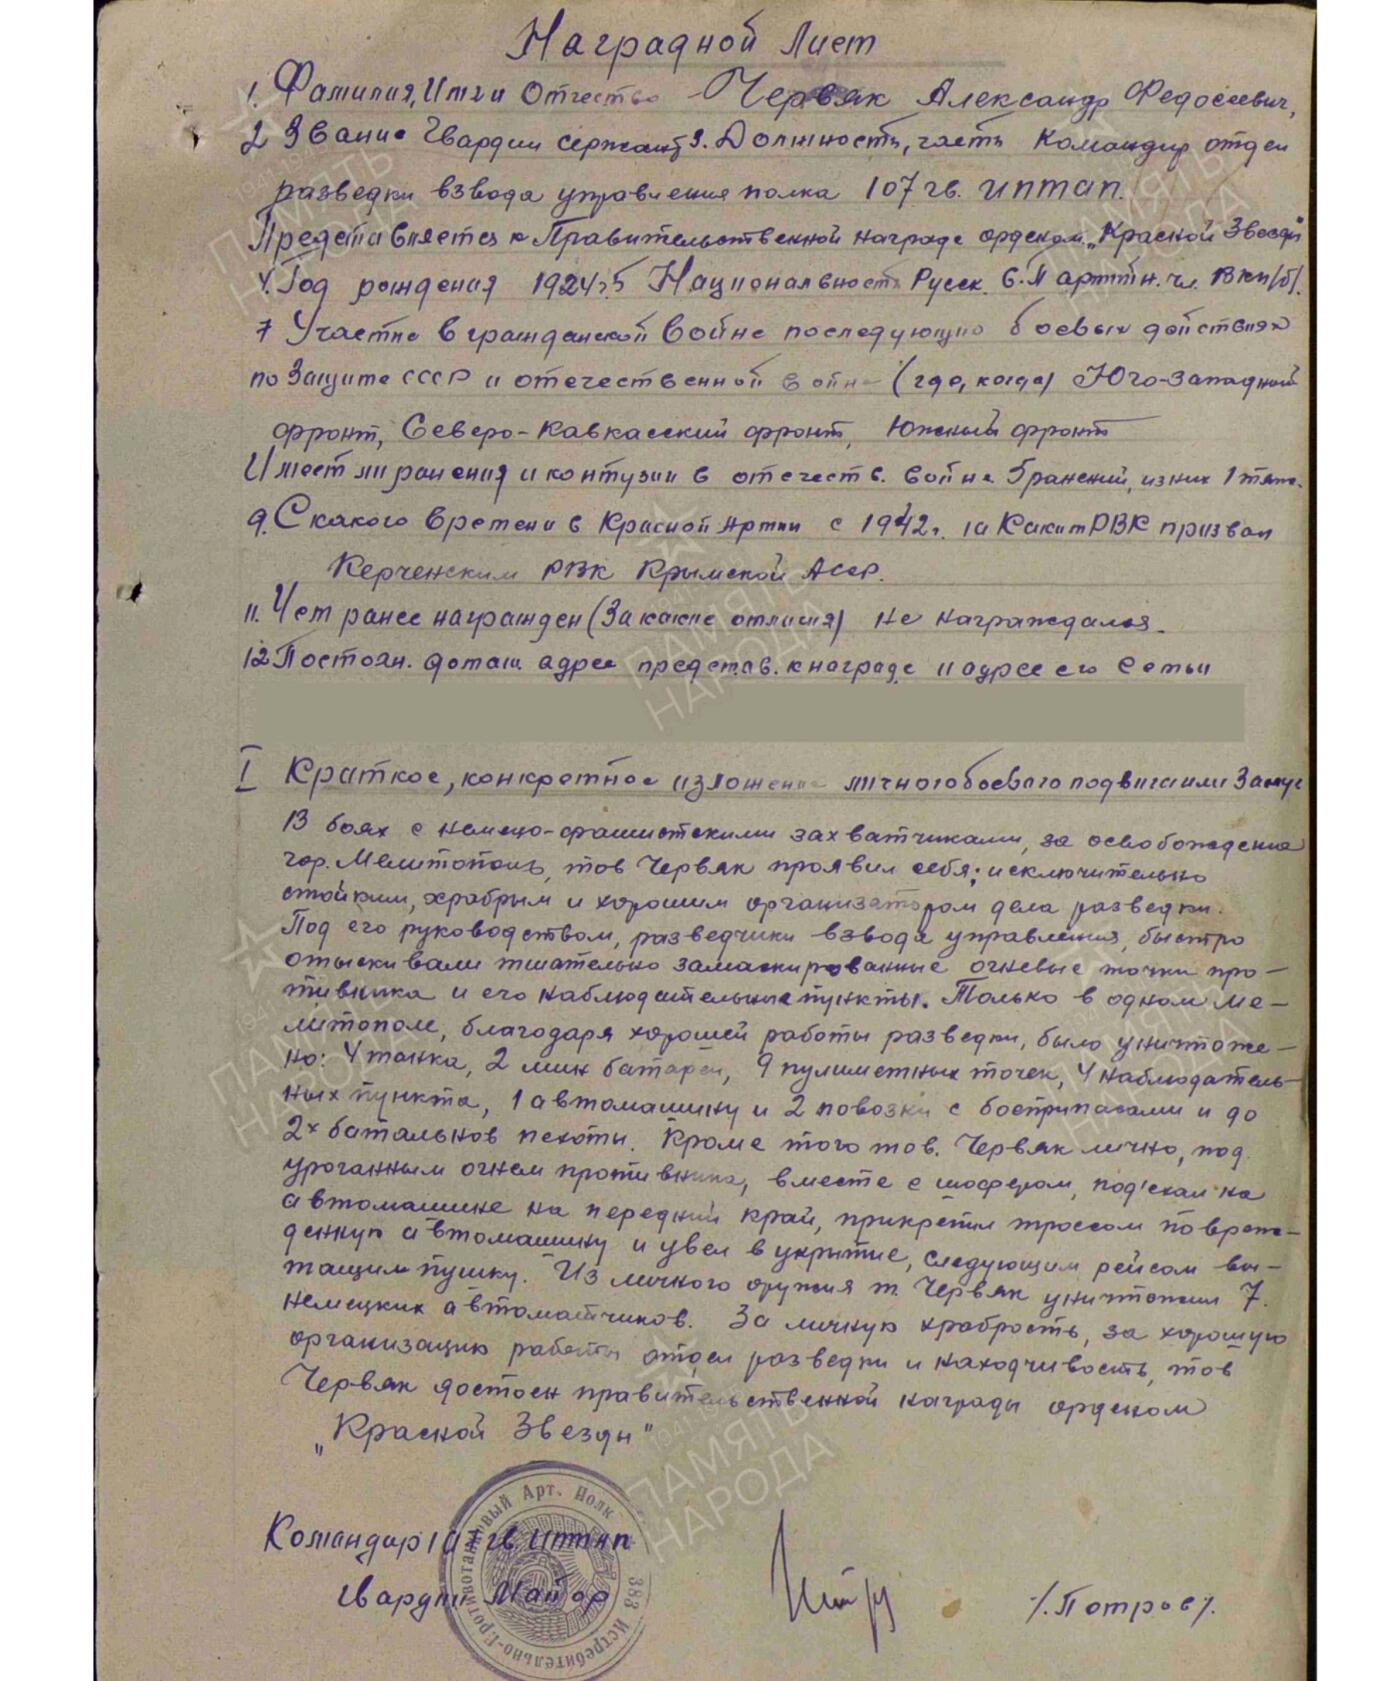 Наградной Лист
1. Фамилия, Имя и Отчество Червяк Александр Федосеевич,
2 Звание Гвардии сержант 3. Должность, часть Командир отдел
разведки взвода управления полка 107 гв. иптап.
Представляется к Правительственной награде орденом „Красной Звезды"
4. Год рождения 1924г. 5 Национальность Русск. 6. Партийн. чл. ВКП(б).
7 Участие в гражданской войне последующих боевых действиях
по защите СССР и отечественной войне (где, когда) Юго-Западной
фронт, Северо-Кавкасский фронт, Южный фронт
Имеет ли ранения и контузии в отечеств. войне 5 ранений, из них 1 тяж.
9. С какого времени в Красной Армии с 1942г. 10 Каким РВК призван
Керченским РВК Крымской АССР.
11. Чем ранее награжден (За какие отличия) не награждался.
12 Постоян. домаш. адрес представ. к награде и адрес его семьи
I Краткое, конкретное изложение личного боевого подвига или заслуг
В боях с немецо-фашистскими захватчиками, за освобождение
гор. Мелитополь, тов Червяк проявил себя; исключительно
стойким, храбрым и хорошим организатором дела разведки.
Под его руководством, разведчики взвода управления, быстро
отыскивали тшательно замаскированные огневые точки про-
тивника и его наблюдательные пункты. Только в одном Ме-
литополе, благодаря хорошей работы разведки, было уничтоже-
но: 4 танка, 2 мин батареи, 9 пулиметных точек, 4 наблюдатель-
ных пункта, 1 автомашину и 2 повозки с боеприпасами и до
2х батальнов пехоты. Кроме того тов. Червяк лично, под
ураганным огнем противника, вместе с шофером, под'ехал на
автомашине на передний край, прикрепил троссом поврож-
денную автомашину и увел в укрытие, следующим рейсом вы-
тащили пушку. Из личного оружия т. Червяк уничтожил 7
немецких автоматчиков. За личную храбрость, за хорошую
организацию работы отдел разведки и находчивость, тов
Червяк достоен правительственной награды орденом
„Красной Звезды"
Командир 107 гв иптап
Гвардии Майор /.Петров/.
383 Истребительно-Противотанковый Арт. Полк
ПАМЯТЬ
НАРОДА
ПАМЯТЬ
НАРОДА
ПАМЯТЬ
НАРОДА
ПАМЯТЬ
НАРОДА
ПАМЯТЬ
НАРОДА
ПАМЯТЬ
НАРОДА